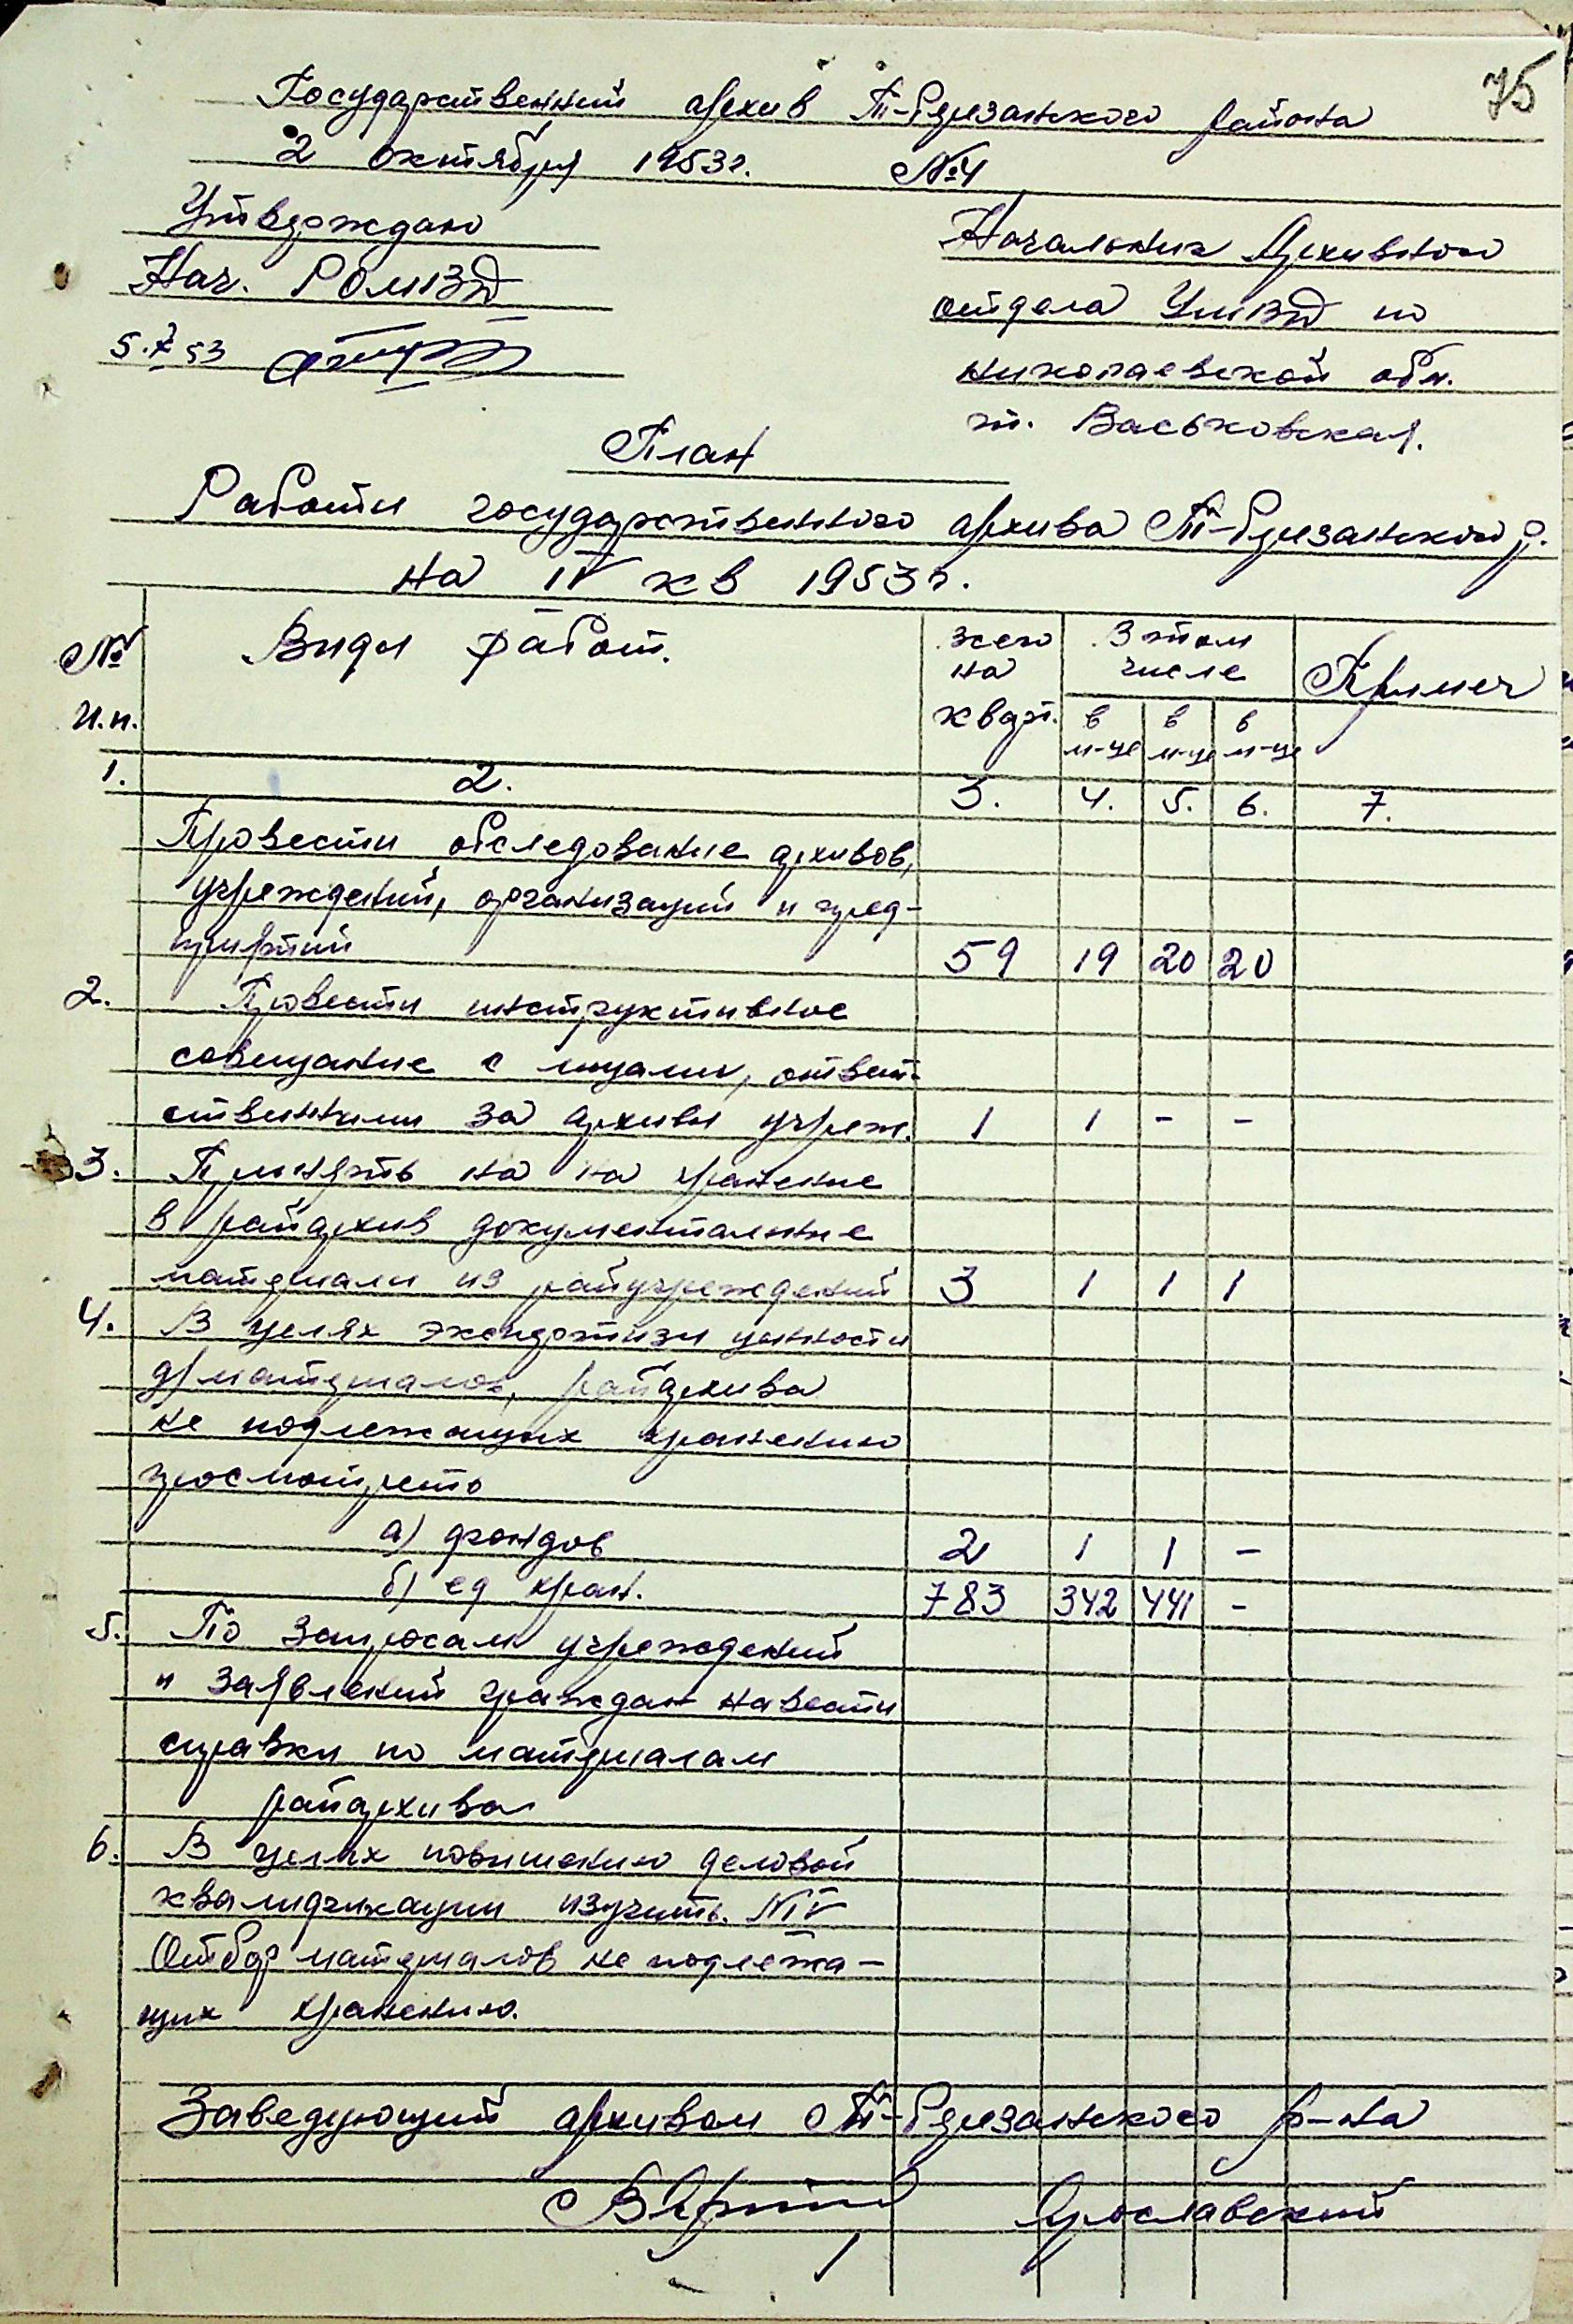 75
Государственный архив Т-Березанского района
2 октября 1953г. №4
Утверждаю
Нач. РОМВД
5.X 53
Начальник Архивного
отдела УМВД по
николаевской обл.
т. Васьковская.
План
Работы государственного архива Т-Березанского р.
на IV кв 1953г.
№ п.п.
Виды работ.
всего на кварт.
В том числе
в м-це
в м-це
в м-це
Примеч
1. 2. 3. 4. 5. 6. 7.
Провести обследование архивов,
учреждений, организаций и пред-
приятий 59 19 20 20
2. Провести инструктивное
совещание с лицами, ответ-
ственными за архивы учреж. 1 1 - -
3. Принять на на хранение
в райархив документальные
материалы из райучреждений 3 1 1 1
4. В целях экспертизы ценности
д/материалов, райархива
не подлежащих хранению
просмотрето
а) фондов 2 1 1 -
б) ед хран. 783 342 441 -
5. По запросам учреждений
и заявлений граждан навести
справки по материалам
райархива
6. В целях повышению деловой
квалификации изучить. №IV
Отбор материалов не подлежа-
щих хранению.
Заведующий архивом Т-Березанского р-на
Ярославский